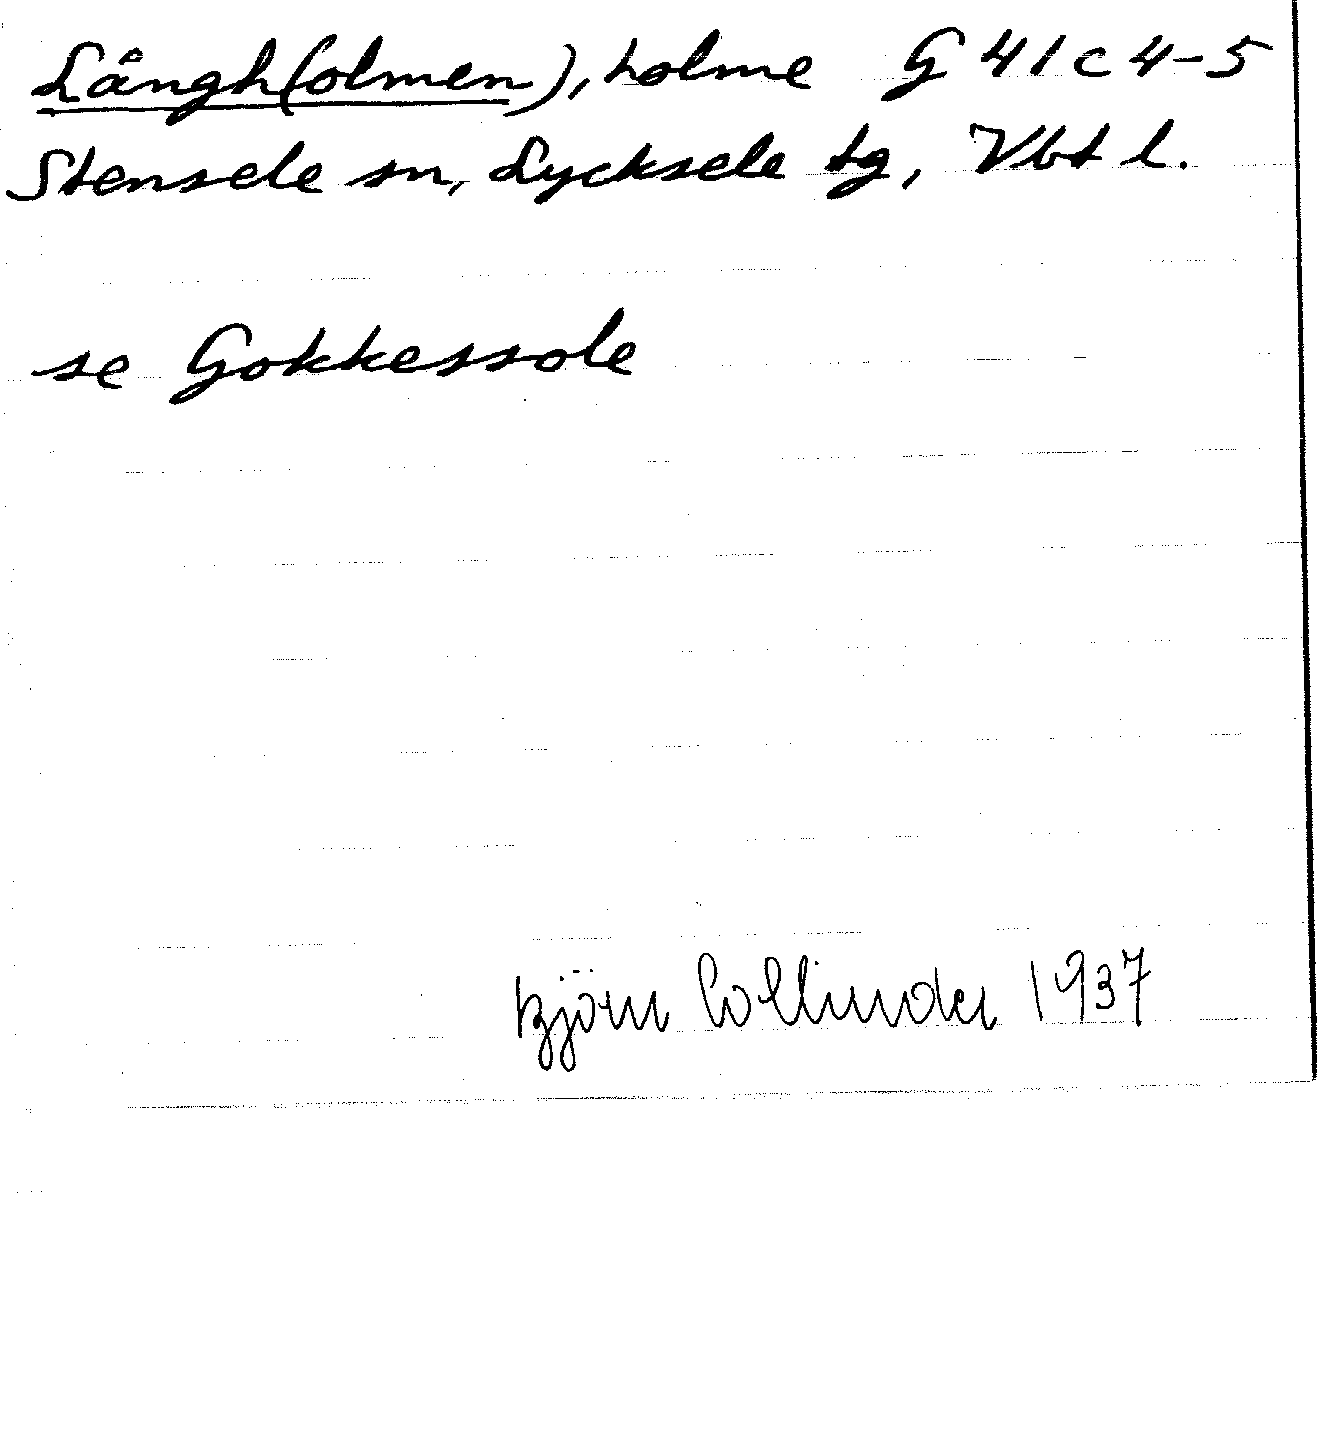 Långh(olmen), holme G 41 c 4-5
Stensele sn, Lycksele tg, Vbt l.
se Gokkessole
Björn Collinder 1937